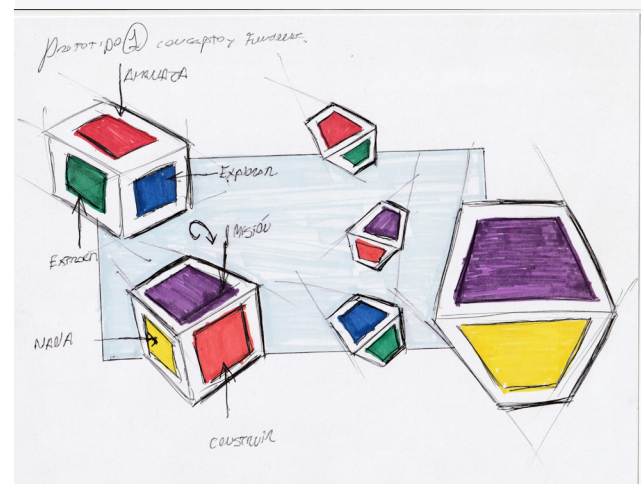 Prototipo 1 concepto y
AMENAZA
Explorar
Extraer
MISIÓN
NADA
CONSTRUIR